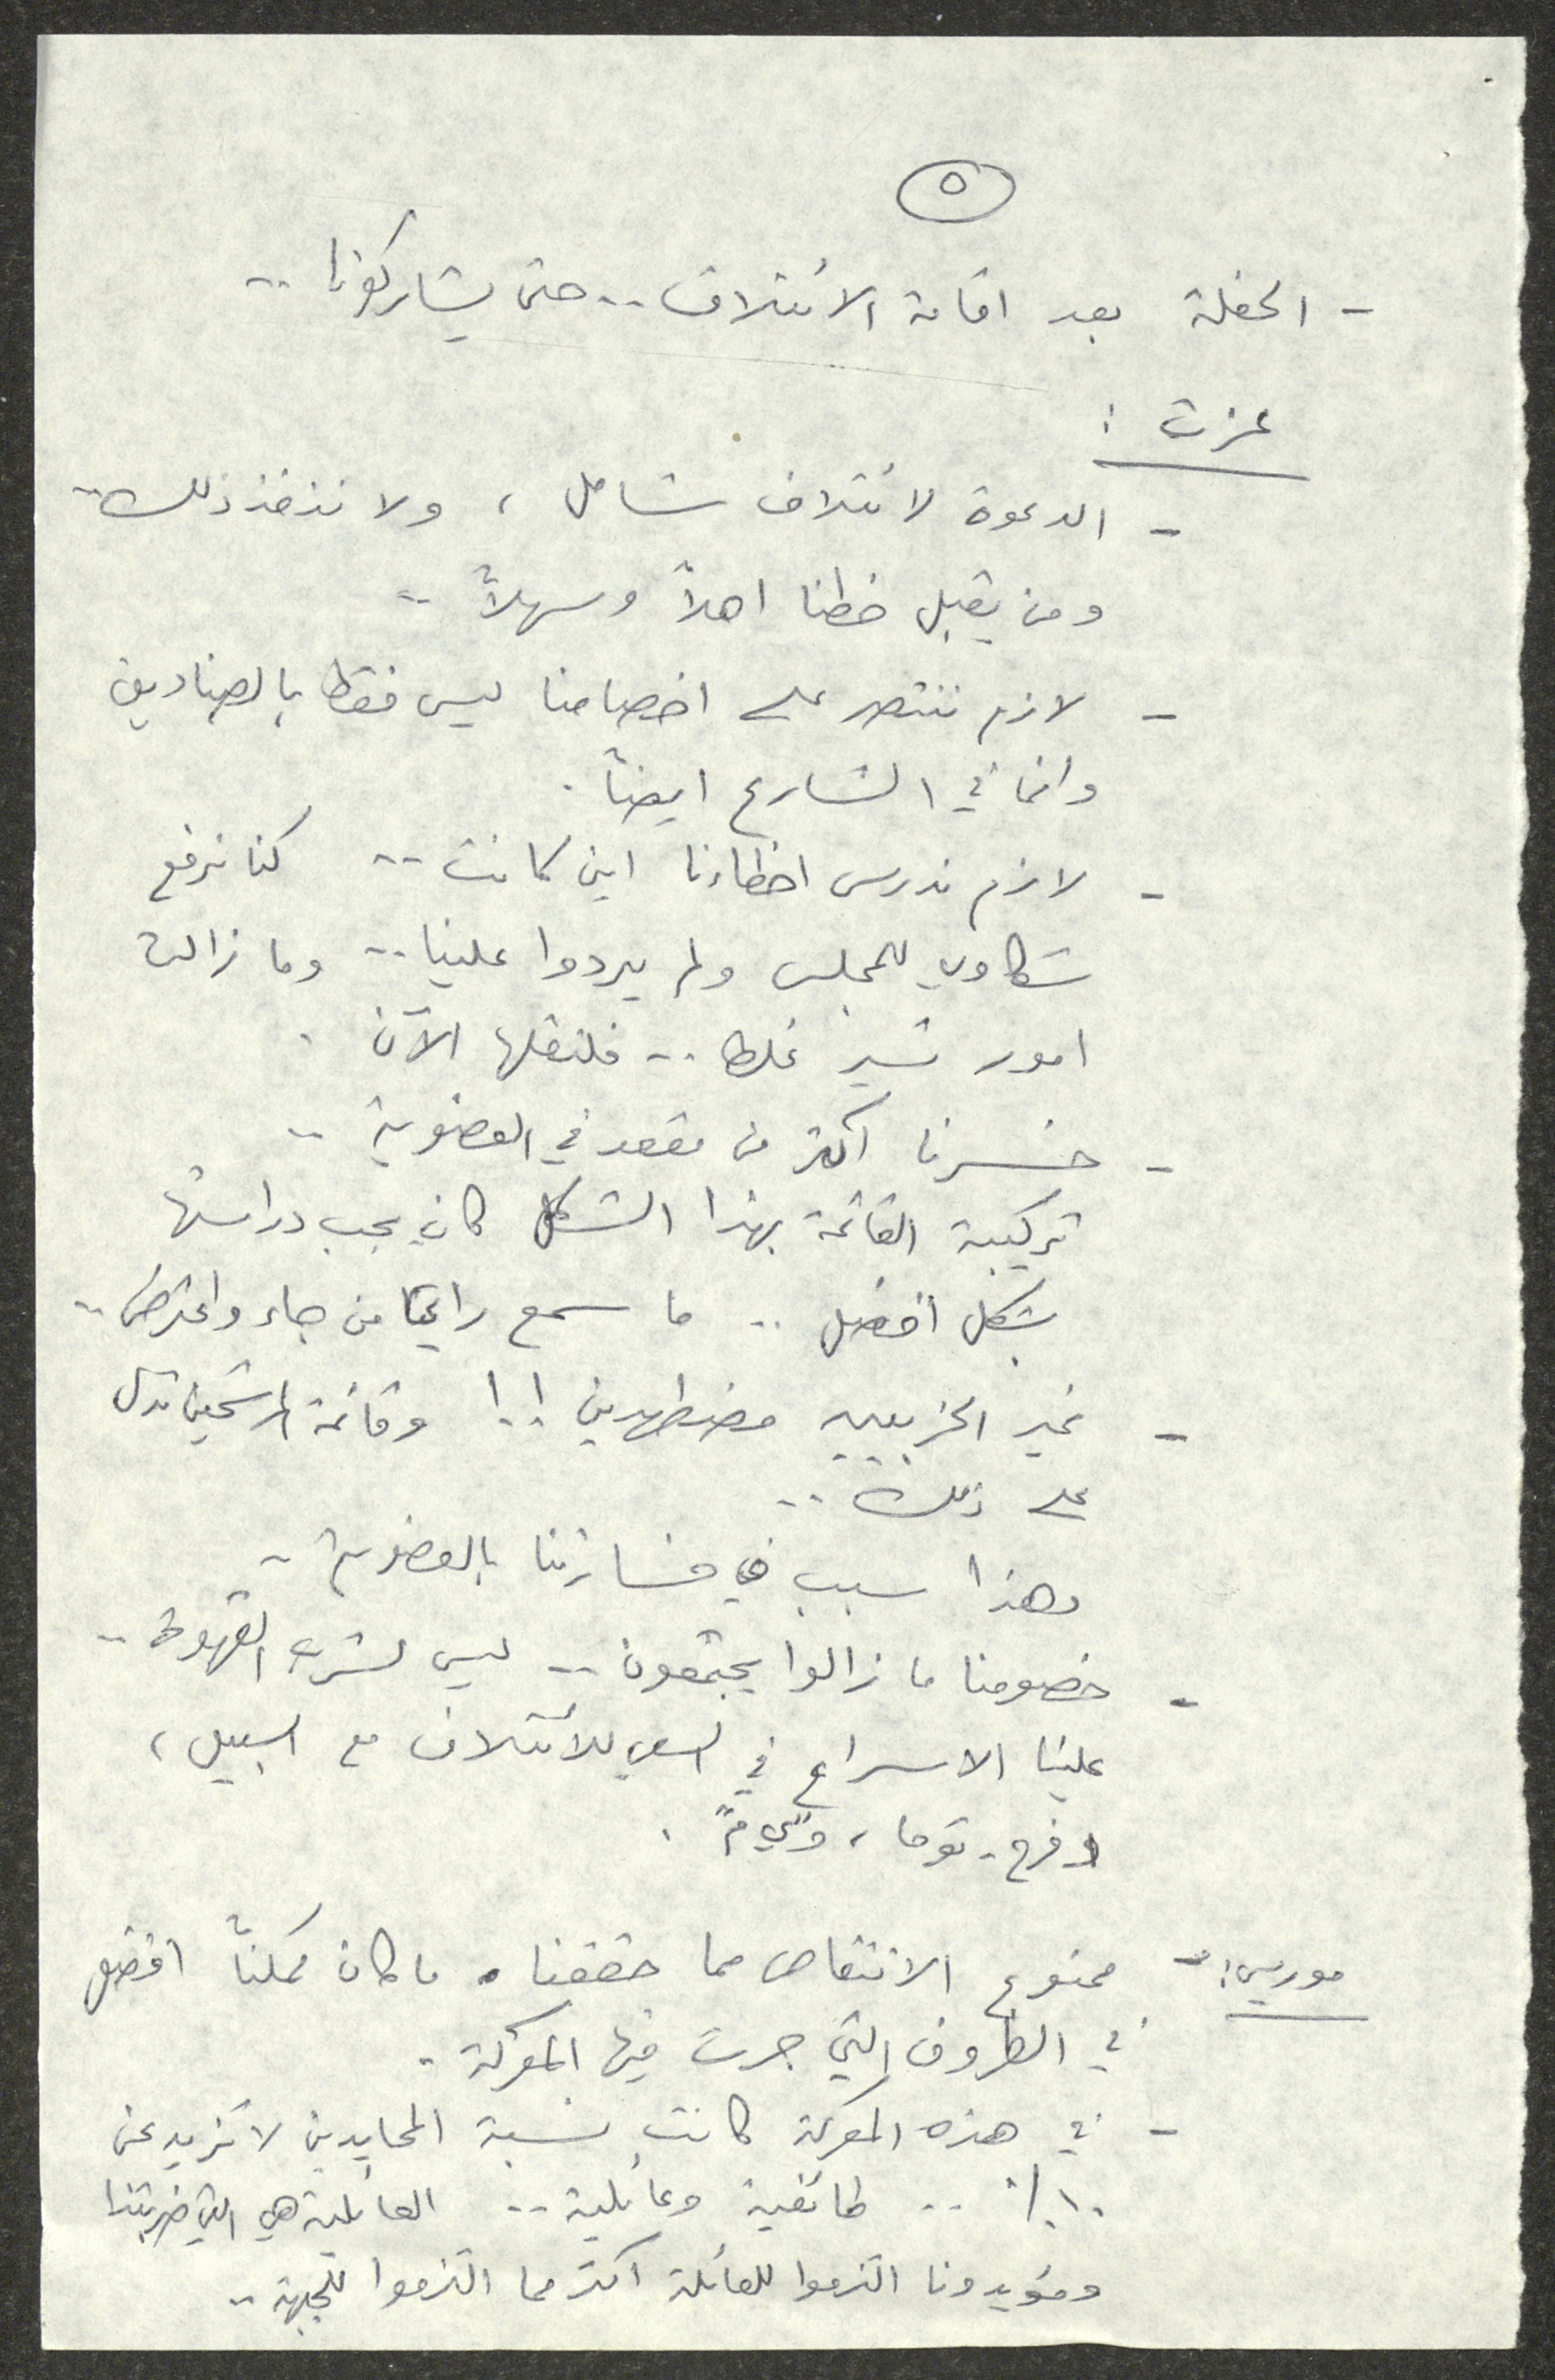 ٥
- الحفلة بعد اقامة الائتلاف .. حتى يشاركونا ..
عزت :
- الدعوة لائتلاف شامل ، ولا ننفذ ذلك ..
ومن يقبل خطنا اهلاً وسهلاً ..
- لازم ننتصر على اخصامنا ليس فقط بالصناديق
وانما في الشارع ايضاً .
- لازم ندرس اخطاءنا اين كانت .. كنا نرفع
شكاوي للمجلس ولم يردوا علينا .. وما زالت
امور تسير غلط .. فلنقلها الآن .
- خسرنا اكثر من مقعد في العضوية ..
تركيبة القائمة بهذا الشكل كان يجب دراستها
بشكل أفضل .. ما سمع من جاء واعترض ..
- غير الحزبيين مضطهدين !! وقائمة المرشحين تدل
على ذلك ..
وهذا سبب في خسارتنا بالعضوية ..
- خصومنا ما زالوا يجتمعون .. ليس لشرب القهوة ..
علينا الاسراع في السعي للائتلاف مع السبيل ،
فرح - توما ،
موريس : - ممنوع الانتقاص مما حققنا . ما كان ممكناً افضل
في الظروف التي جرت فيها المعركة .
- في هذه المعركة كانت نسبة المحايدين لا تزيد عن
١٠٪ .. طائفية وعائلية .. العائلية هي التي ضربتنا
ومؤيدونا التزموا للعائلة اكثر مما التزموا للجبهة ..